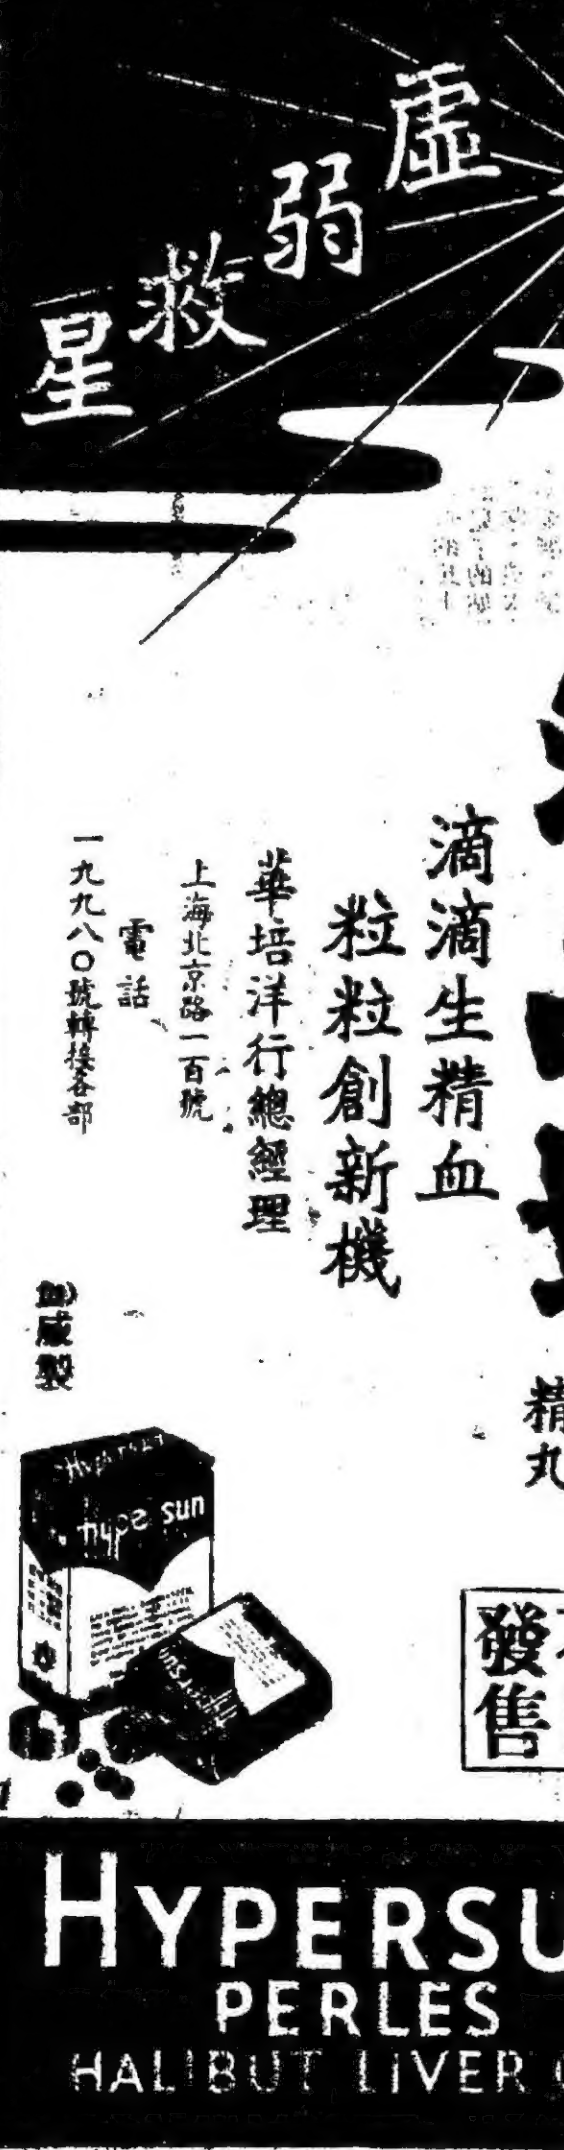 虛弱救星
滴滴生精血
粒粒創新機
華培洋行總經理
上海北京路一百號
電話
一九九八〇號轉接各部
精丸
發售
威製
Hypersun
hype sun
HYPERSU
PERLES
HALIBUT LIVER